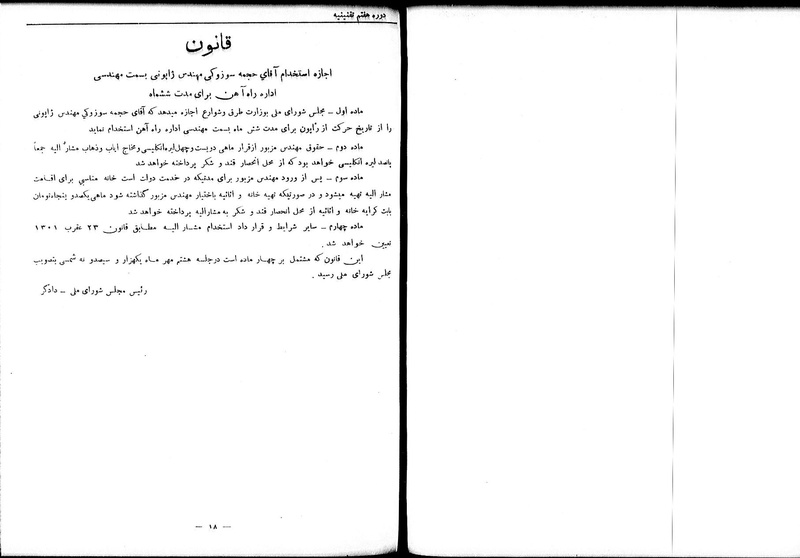 دوره هفتم تقنینیه
قانون
اجازه استخدام آقای حجمه سوزوکی مهندس ژاپونی بسمت مهندسی
اداره راه آهن برای مدت ششماه
ماده اول ــ مجلس شورای ملی بوزارت طرق وشوارع اجازه میدهد که آقای حجمه سوزوکی مهندس ژاپونی
را از تاریخ حرکت از ژاپون برای مدت شش ماه بسمت مهندسی اداره راه آهن استخدام نماید
ماده دوم ــ حقوق مهندس مزبور ازقرار ماهی دویست وچهل لیره انگلیسی ومخارج ایاب وذهاب مشار الیه جمعاً
پانصد لیره انگلیسی خواهد بود که از محل انحصار قند و شکر پرداخته خواهد شد
ماده سوم ــ پس از ورود مهندس مزبور برای مدتیکه در خدمت دولت است خانه مناسبی برای اقامت
مشار الیه تهیه میشود و در صورتیکه تهیه خانه و اثاثیه باختیار مهندس مزبور گذاشته شود ماهی یکصدو پنجاه تومان
بابت کرایه خانه و اثاثیه از محل انحصار قند و شکر به مشارالیه پرداخته خواهد شد
ماده چهارم ــ سایر شرایط و قرار داد استخدام مشار الیه مطابق قانون ۲۳ عقرب ۱۳۰۱
تعیین خواهد شد .
این قانون که مشتمل بر چهار ماده است درجلسه هشتم مهر ماه یکهزار و سیصدو نه شمسی بتصویب
مجلس شورای ملی رسید .
رئیس مجلس شورای ملی ــ دادگر
— ۱۸ —